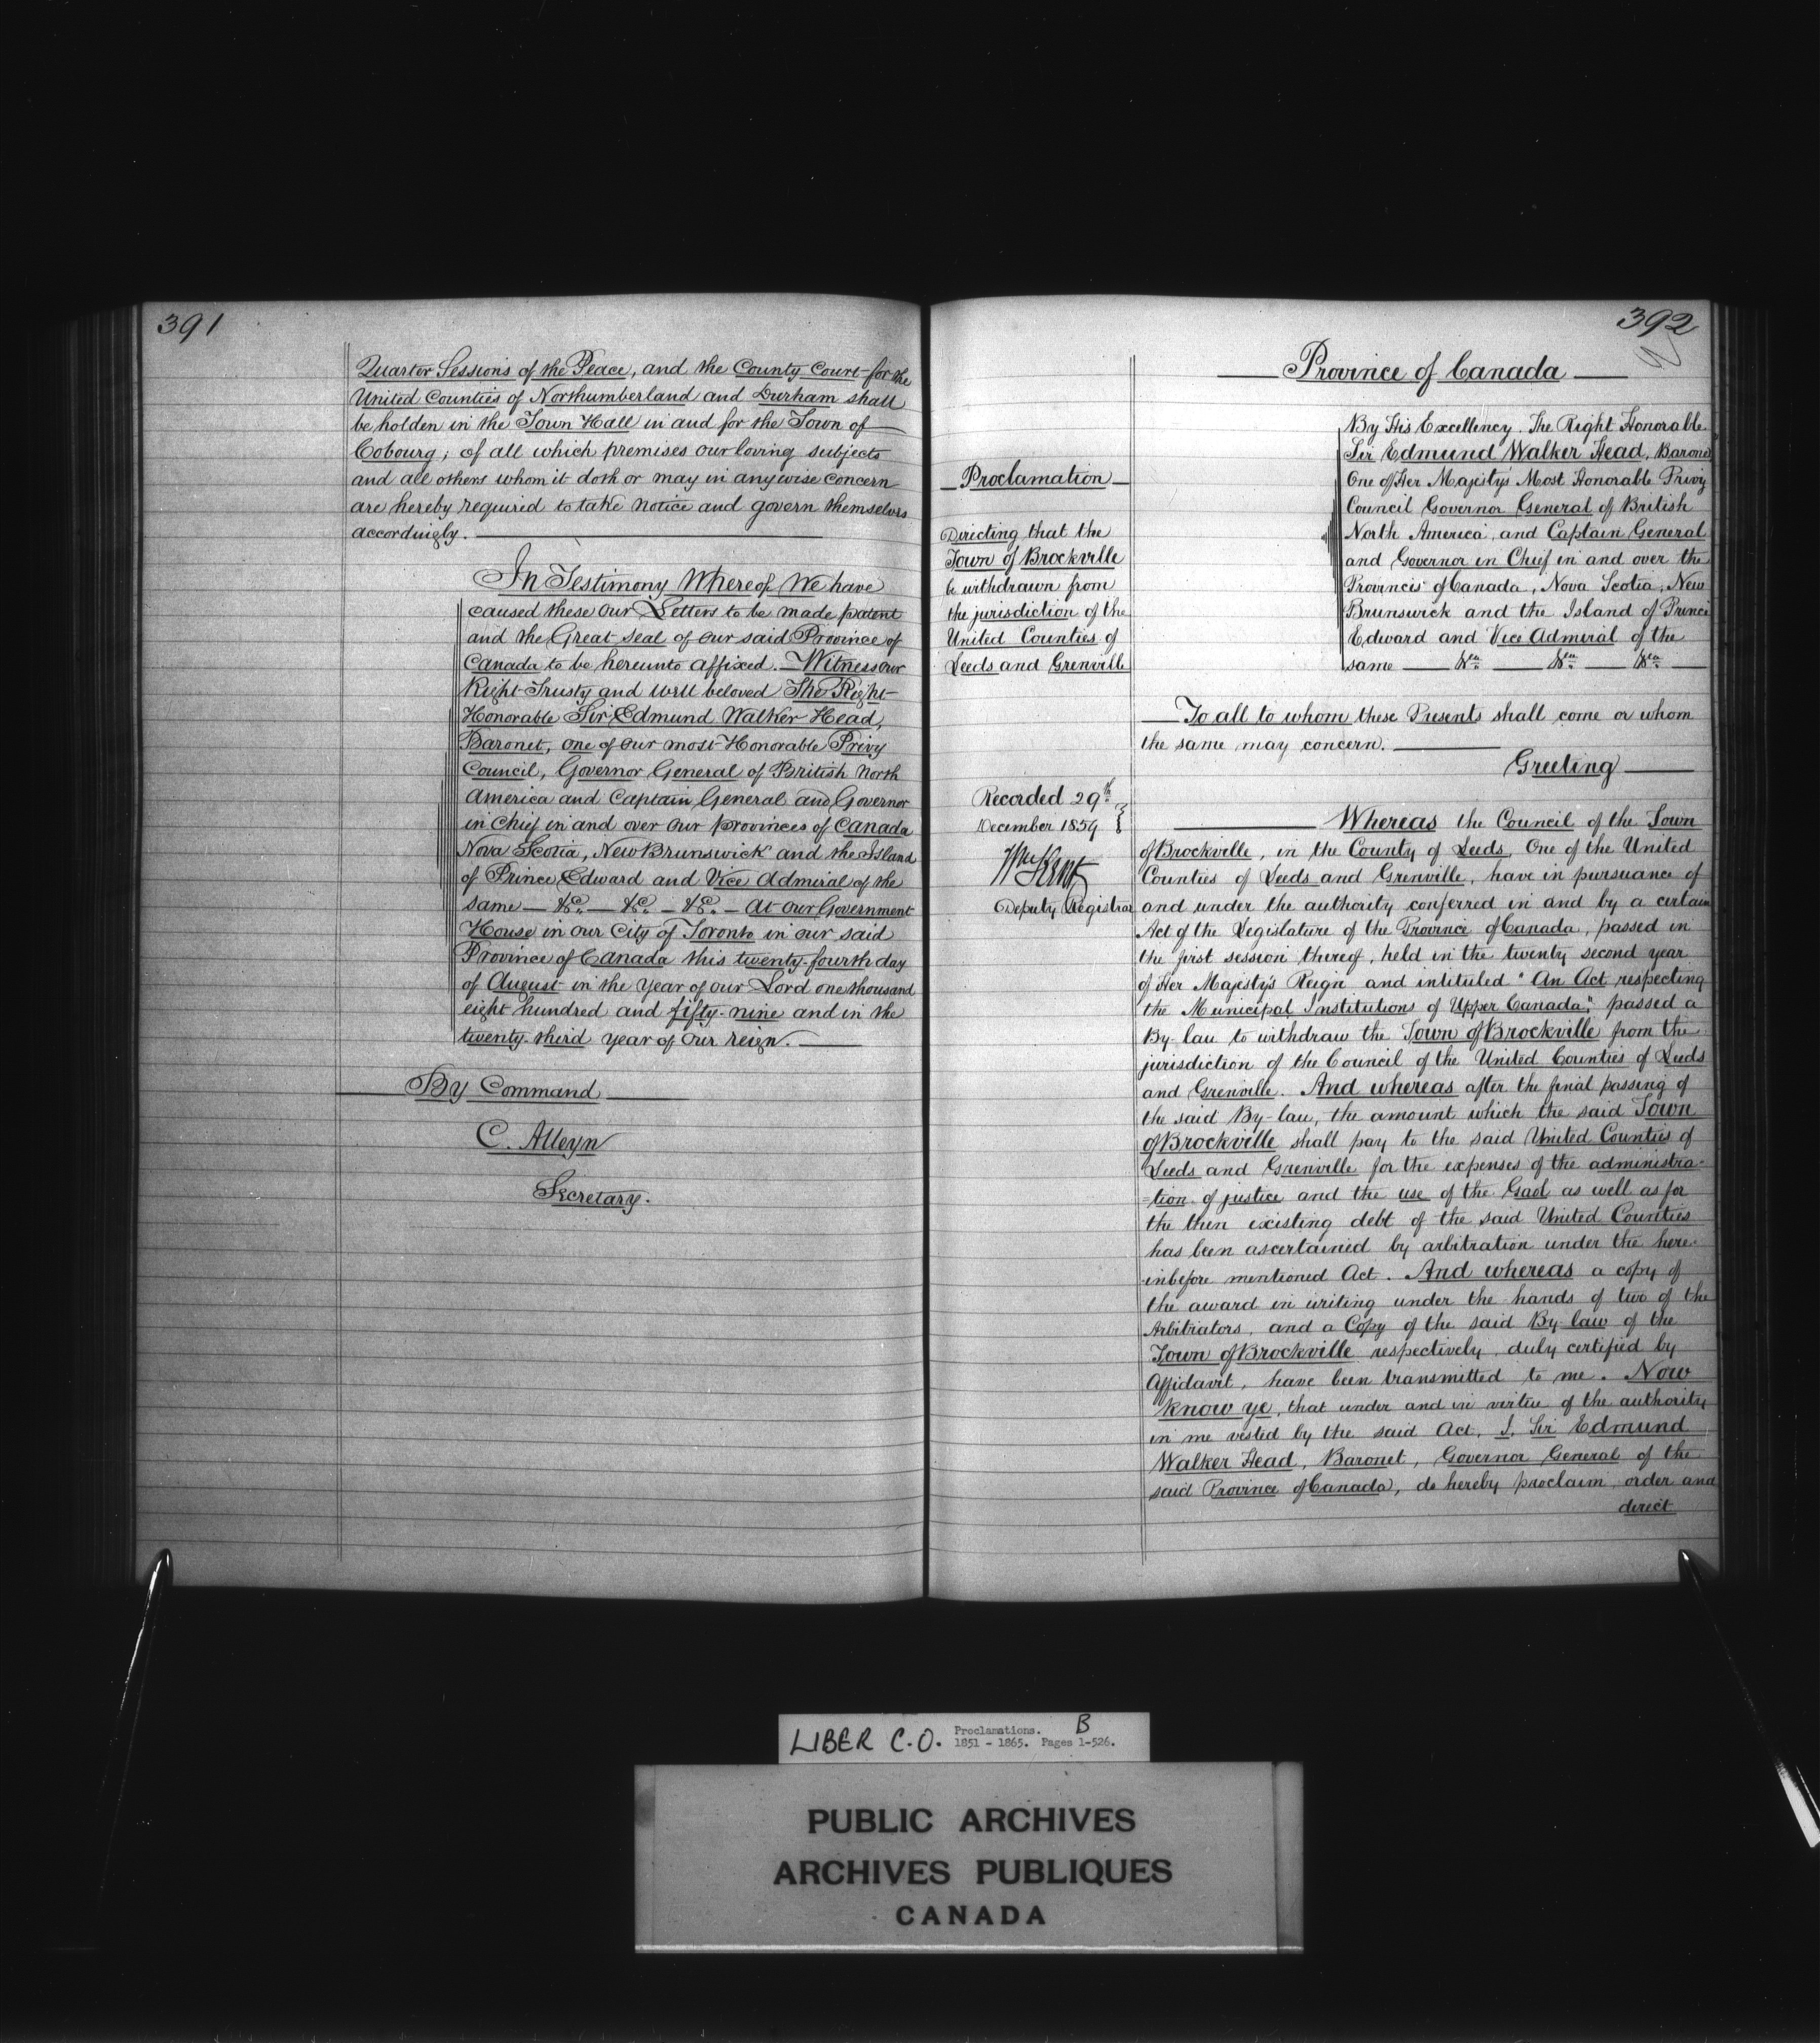 391
Quarter Sessions of the Peace, and the County Court for the
United Counties of Northumberland and Durham shall
be holden in the Town Hall in and for the Town of
Cobourg; of all which premises our loving subjects
and all others whom it doth or may in any wise concern
are hereby required to take notice and govern themselves
accordingly.
In Testimony Whereof We have
caused these our Letters to be made patent
and the Great Seal of our said Province of
Canada to be hereunto affixed. Witness our
Right Trusty and well beloved The Right
Honorable Sir Edmund Walker Head,
Baronet, one of our most Honorable Privy
Council, Governor General of British North
America and Captain General and Governor
in Chief in and over our provinces of Canada
Nova Scotia, New Brunswick and the Island
of Prince Edward and Vice Admiral of the
same — &c. — &c. — &c. — At our Government
House in our City of Toronto in our said
Province of Canada this twenty-fourth day
of August in the year of our Lord one thousand
eight hundred and fifty-nine and in the
twenty-third year of our reign.
By Command
C. Alleyn
Secretary.
392
Province of Canada
By His Excellency. The Right Honorable
Sir Edmund Walker Head, Baronet
One of Her Majesty's Most Honorable Privy
Council Governor General of British
North America, and Captain General
and Governor in Chief in and over the
Provinces of Canada, Nova Scotia, New
Brunswick and the Island of Prince
Edward and Vice Admiral of the
same — &ca. — &ca. — &ca. —
Proclamation
Directing that the
Town of Brockville
be withdrawn from
the jurisdiction of the
United Counties of
Leeds and Grenville
Recorded 29th
December 1859
Wm Kent
Deputy Registrar
To all to whom these Presents shall come or whom
the same may concern.
Greeting
Whereas the Council of the Town
of Brockville, in the County of Leeds, One of the United
Counties of Leeds and Grenville, have in pursuance of
and under the authority conferred in and by a certain
Act of the Legislature of the Province of Canada, passed in
the first session thereof, held in the twenty second year
of Her Majesty's Reign and intituled "An Act respecting
the Municipal Institutions of Upper Canada", passed a
By-law to withdraw the Town of Brockville from the
jurisdiction of the Council of the United Counties of Leeds
and Grenville. And whereas after the final passing of
the said By-law, the amount which the said Town
of Brockville shall pay to the said United Counties of
Leeds and Grenville for the expenses of the administra-
=tion of justice and the use of the Gaol as well as for
the then existing debt of the said United Counties
has been ascertained by arbitration under the here-
inbefore mentioned Act. And whereas a copy of
the award in writing under the hands of two of the
Arbitrators, and a Copy of the said By-law of the
Town of Brockville respectively duly certified by
Affidavit, have been transmitted to me. Now
know ye, that under and in virtue of the authority
in me vested by the said Act, I, Sir Edmund
Walker Head, Baronet, Governor General of the
said Province of Canada, do hereby proclaim order and
direct
LIBER C.O. Proclamations. B
1851 - 1865. Pages 1-526.
PUBLIC ARCHIVES
ARCHIVES PUBLIQUES
CANADA